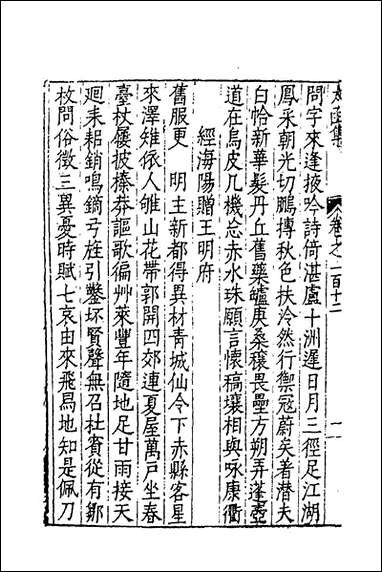 太函集 卷之一百十二 一
問字來逢掖吟詩倚湛盧十洲遲日月三徑足江湖
鳳采朝光切鵬摶秋色扶泠然行禦寇蔚矣著潛夫
白恰新華髮丹丘舊藥罏庚桑穰畏壘方朔弄蓬壺
道在烏皮几機忘赤水珠願言懷稿壤相與咏康衢
經海陽贈王明府
舊服更 明主新都得異材青城仙令下赤縣客星
來澤雉依人雊山花帶郭開四郊連夏屋萬戶坐春
臺杖屨披榛莽謳歌徧艸萊豐年隨地足甘雨接天
迴耒耜銷鳴鏑弓旌引鑿坏賢聲無召杜賓從有鄒
枚問俗徵三異憂時賦七哀由來飛舄地知是佩刀